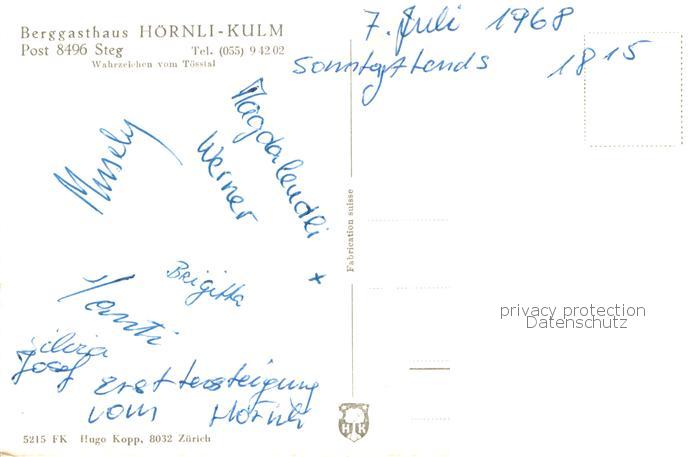 Berggasthaus HÖRNLI-KULM
Post 8496 Steg Tel. (055) 9 42 02
Wahrzeichen vom Tösstal
7. Juli 1968
Sonntag Abends 18 15
Magdalendli
Werner
Brigitta
Hansli
Silvia
Josef
Erstbersteigung
vom Hörnli
Fabrication suisse
privacy protection
Datenschutz
H K
5215 FK Hugo Kopp, 8032 Zürich